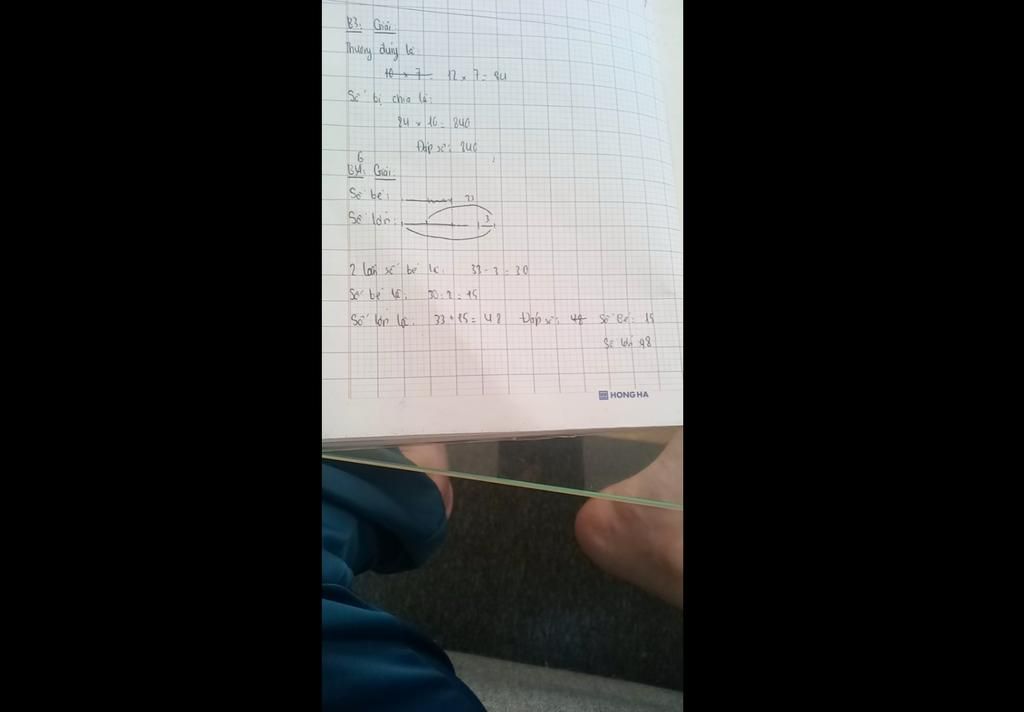 B3: Giải:
Thương đúng là:
10 × 7 = 12 × 7 = 84
Số bị chia là:
84 × 10 = 840
Đáp số: 840
6
B4: Giải:
Số bé:
33
Số lớn:
3
2 lần số bé là: 33 - 3 = 30
Số bé là: 30 : 2 = 15
Số lớn là: 33 + 15 = 48 Đáp số: 48 Số bé: 15
Số lớn 48
HONG HA